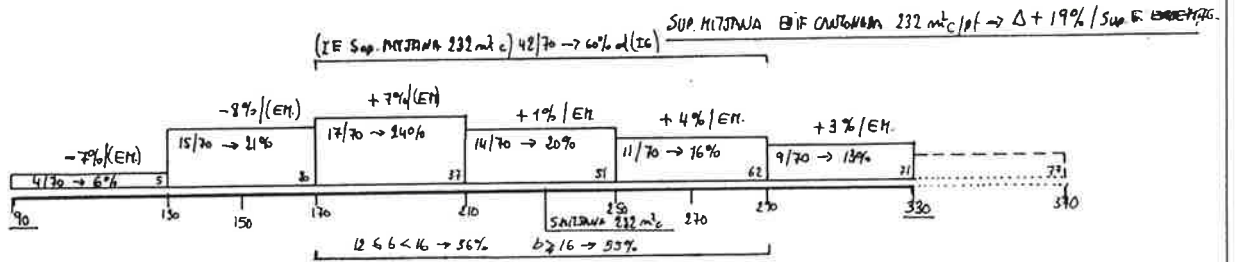 SUP. MITJANA EDIF CANTONADA 232 m²c/pf → Δ + 19% / SUP. E.
(IE Sup. MITJANA 232 m²c) 42/70 → 60% d(IG)
-7%/(EM) -8%/(EM.) +7%/(EM) +1%/EM. +4%/EM. +3%/EM.
4/70 → 6% 15/70 → 21% 17/70 → 24% 14/70 → 20% 11/70 → 16% 9/70 → 13%
5 20 37 51 62 71 77
90 130 150 170 210 250 270 290 330 370
S.MITJANA 232 m²c
12 ≤ b < 16 → 36% b ≥ 16 → 55%